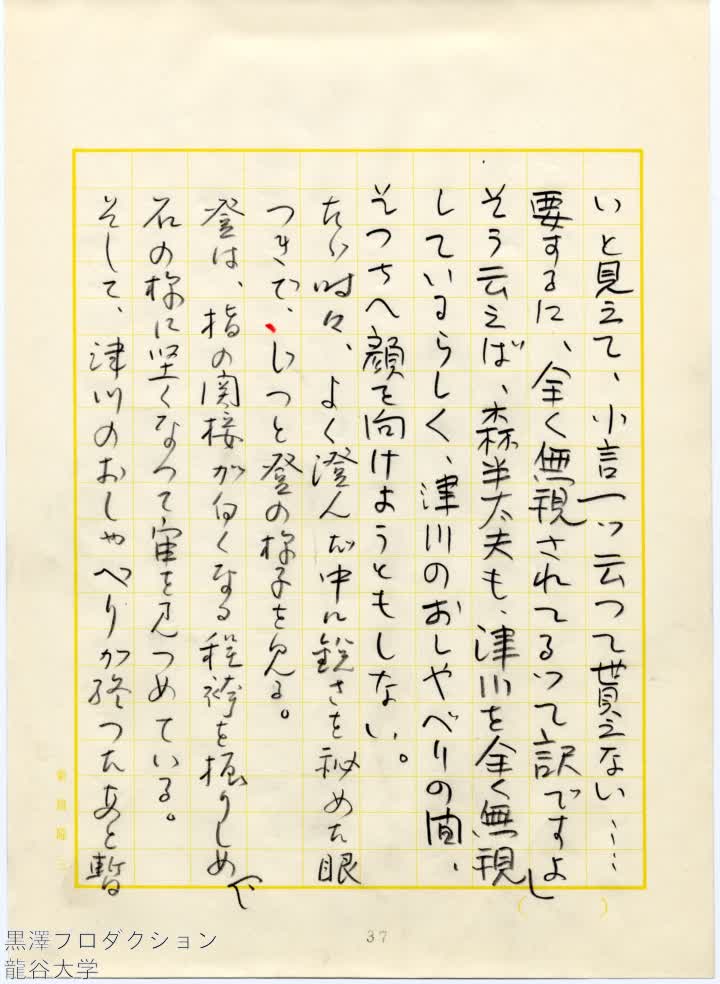 いと見えて、小言一ツ云つて貰えない……
要するに、全く無視されてるつて訳ですよ」
そう云えば、森半太夫も、津川を全く無視
しているらしく、津川のおしやべりの間、
そつちへ顔を向けようともしない。
たゞ時々、よく澄んだ中に鋭さを秘めた眼
つきで、じつと登の様子を見る。
登は、指の関接が白くなる程袴を握りしめて
石の様に堅くなつて宙を見つめている。
そして、津川のおしやべりが終つたあと暫
37
黒澤プロダクション
龍谷大学